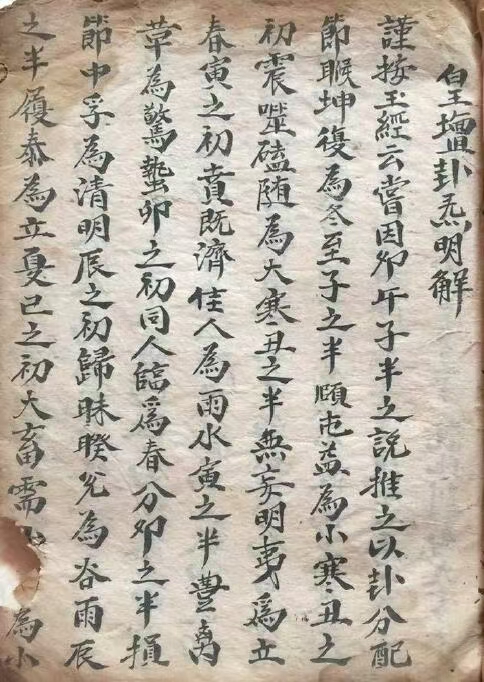 皇壇卦炁明解
謹按玉經云嘗因卯午子半之說推之以卦分配
節睺坤復為冬至子之半頤屯益為小寒丑之
初震噬磕随為大寒丑之半無妄明夷為立
春寅之初賁既濟佳人為雨水寅之半豊离
草為驚蟄卯之初同人臨為春分卯之半損
節中孚為清明辰之初歸昧睽兌為谷雨辰
之半履泰為立夏巳之初大畜需為小